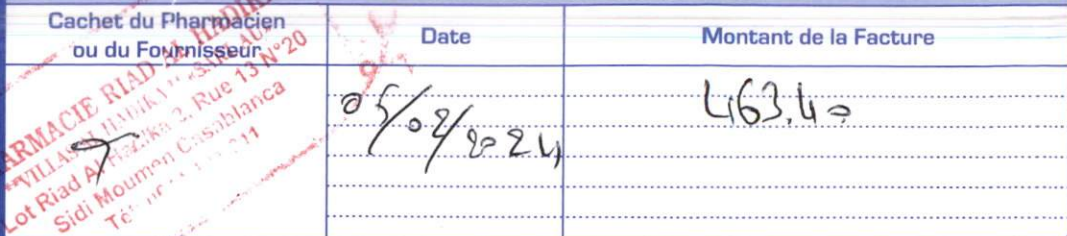 Cachet du Pharmacien
ou du Fournisseur
Date
Montant de la Facture
ARMACIE RIAD AL HADIKA
Rue 13 N°20
Lot Riad Al 2,
Sidi Moumen Casablanca
05/02/2024
463.40